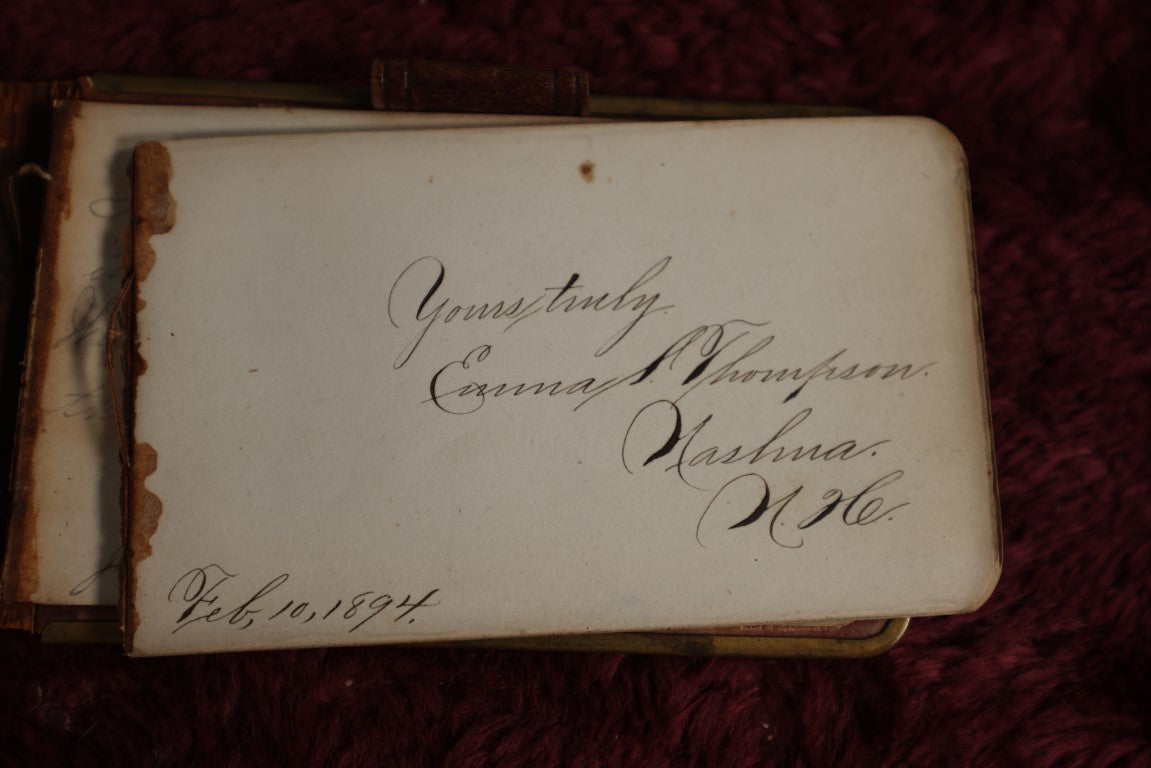 Yours truly.
Emma S. Thompson.
Nashua.
N. H.
Feb, 10, 1894.